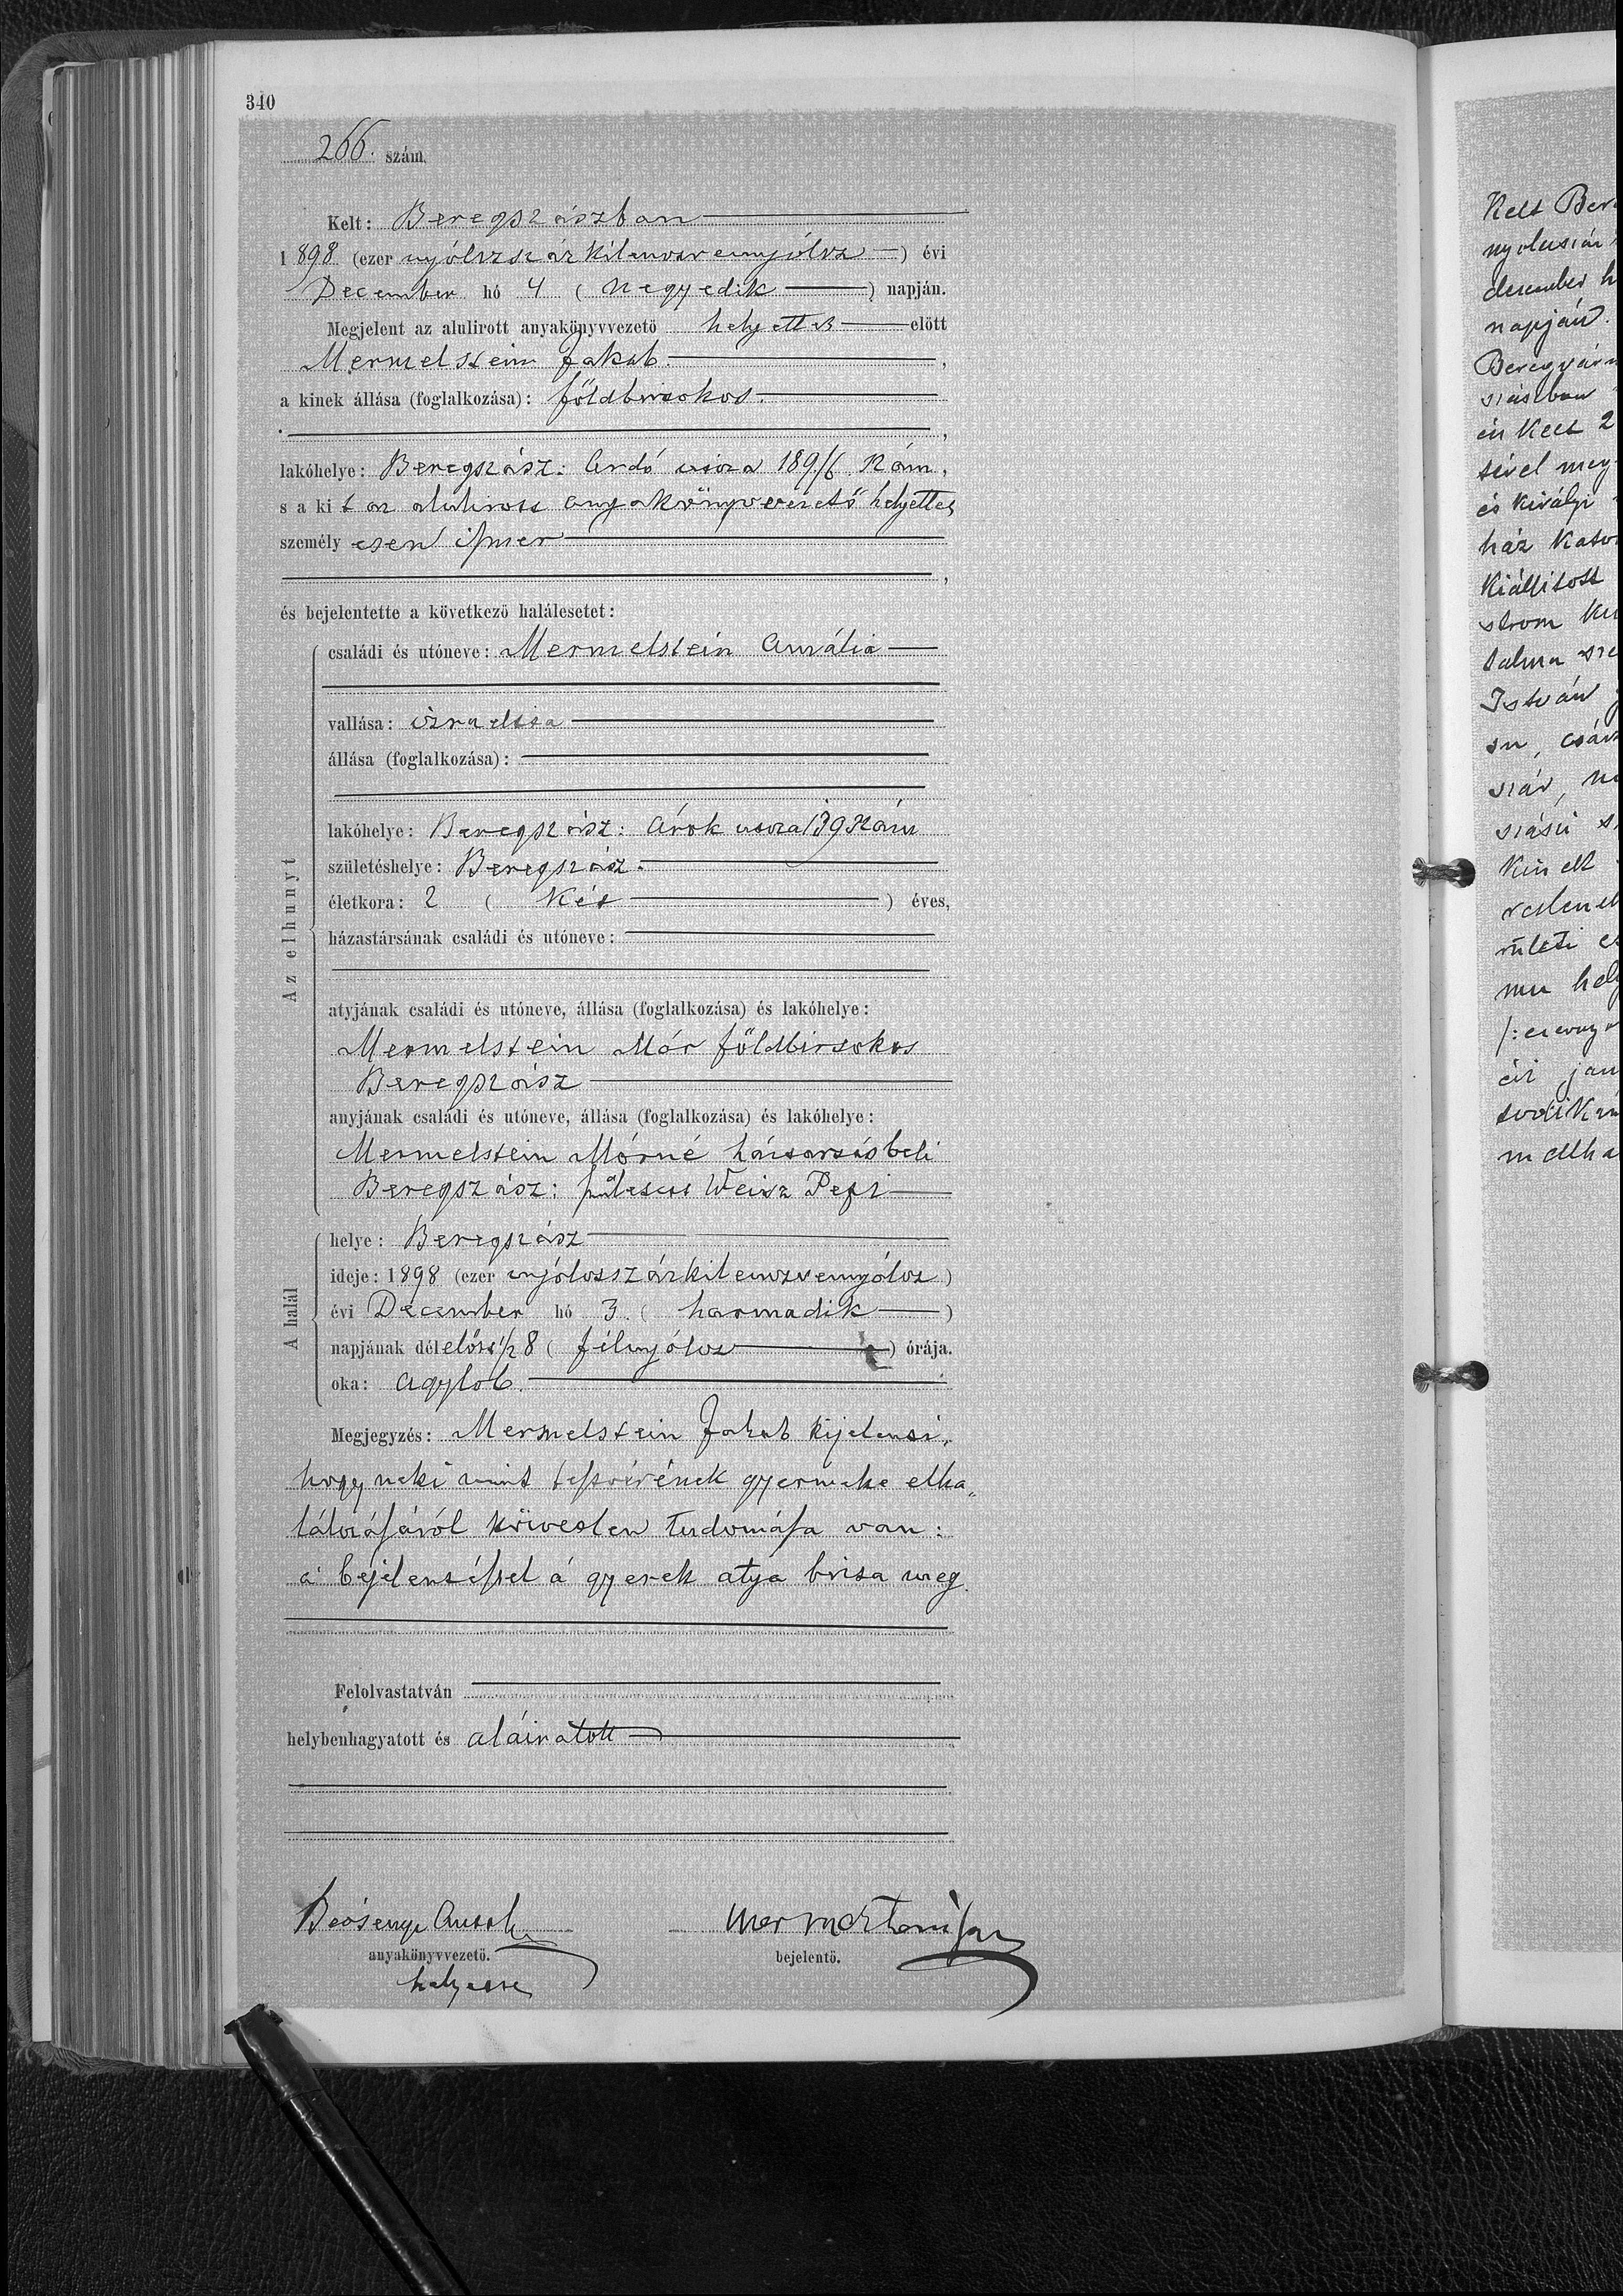 340
266. szám.
Kelt: Beregszászban
1898 (ezer nyólczszázkilenczvennyólcz) évi
December hó 4 (negyedik) napján.
Megjelent az alulirott anyakönyvvezető helyettes előtt
Mermelstein Jakab,
a kinek állása (foglalkozása): földbirtokos.
lakóhelye: Beregszász: Ardó utcza 189/6 szám,
s a kit az alulirott anyakönyvvezető helyettes
személyesen ismer
és bejelentette a következő halálesetet:
Az elhunyt
családi és utóneve: Mermelstein Amália
vallása: izraelita
állása (foglalkozása):
lakóhelye: Beregszász: Árok utcza 139 szám
születéshelye: Beregszász.
életkora: 2 (Két) éves,
házastársának családi és utóneve:
atyjának családi és utóneve, állása (foglalkozása) és lakóhelye:
Mermelstein Mór földbirtokos
Beregszász
anyjának családi és utóneve, állása (foglalkozása) és lakóhelye:
Mermelstein Mórné háztartásbeli
Beregszász: született Weisz Pepi
A halál
helye: Beregszász
ideje: 1898 (ezer nyólczszázkilenczvennyólcz)
évi December hó 3. (harmadik)
napjának délelőtt 1/2 8 (félnyólcz) órája.
oka: agylob.
Megjegyzés: Mermelstein Jakab kijelenti,
hogy neki mint testvérének gyermeke elha„
lálozásáról közvetlen tudomása van:
a bejelentéssel a gyerek atyja bizta meg.
Felolvastatván
helybenhagyatott és aláiratott
anyakönyvvezető.
helyettes
bejelentő.
Kelt Ber
december h
napján.
én kelt 2
és királyi
ház
Kiállitott
István